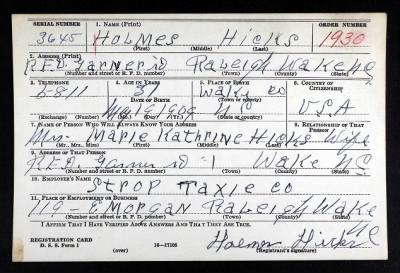 SERIAL NUMBER 1. NAME (Print) ORDER NUMBER
3645 Holmes Hicks 1930
(First) (Middle) (Last)
2. ADDRESS (Print)
R.F.D. Garner Rd Raleigh Wake NC
(Number and street or R. F. D. number) (Town) (County) (State)
3. TELEPHONE 4. AGE IN YEARS 5. PLACE OF BIRTH 6. COUNTRY OF CITIZENSHIP
6-8-11 31 Wake Co
DATE OF BIRTH (Town or county)
1909 N.C. U.S.A
(Exchange) (Number) (Mo.) (Day) (Yr.) (State or country)
7. NAME OF PERSON WHO WILL ALWAYS KNOW YOUR ADDRESS 8. RELATIONSHIP OF THAT PERSON
Mrs. Marie Kathrine Hicks Wife
(Mr., Mrs., Miss) (First) (Middle) (Last)
9. ADDRESS OF THAT PERSON
R.F.D. Garner Rd -1 Wake N.C.
(Number and street or R. F. D. number) (Town) (County) (State)
10. EMPLOYER'S NAME
Strop Taxie Co
11. PLACE OF EMPLOYMENT OR BUSINESS
119 - E Morgan Raleigh Wake NC
(Number and street or R. F. D. number) (Town) (County) (State)
I AFFIRM THAT I HAVE VERIFIED ABOVE ANSWERS AND THAT THEY ARE TRUE.
REGISTRATION CARD
D. S. S. Form 1 (over) 16-17105 Holmes Hicks
(Registrant's signature)